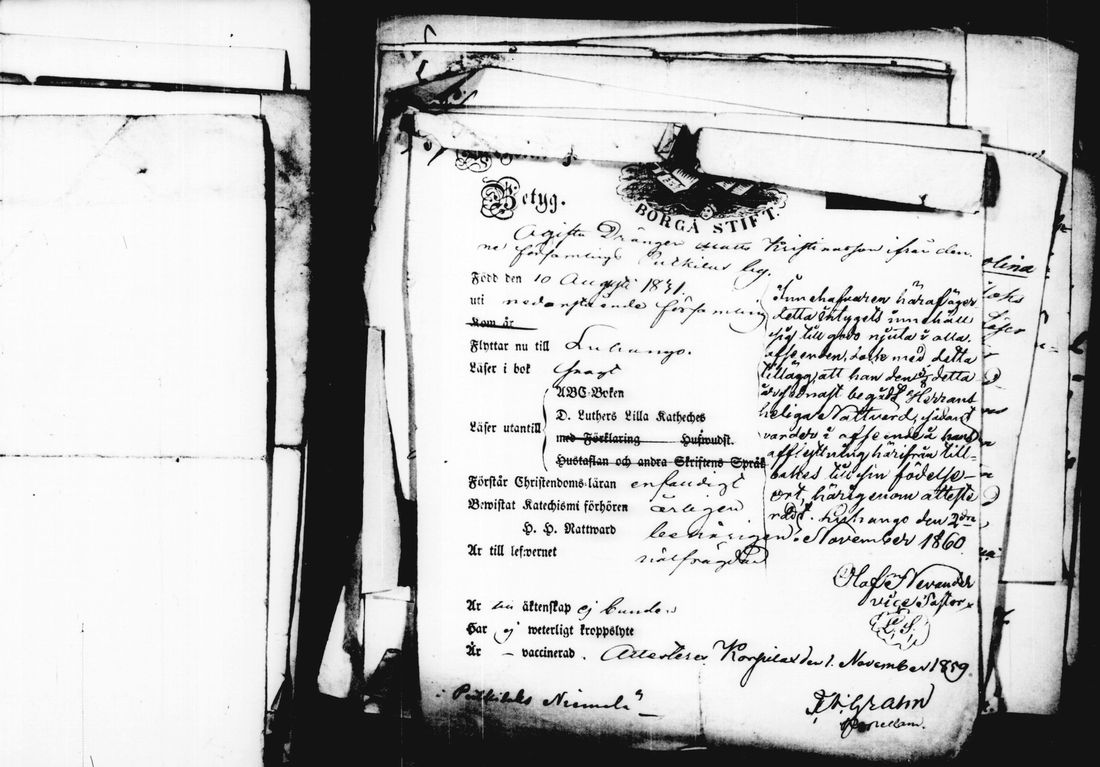 Betyg.
BORGÅ STIFT.
Ogifta Drängen Matts Kristiansson ifrån den
ne församlings Putkilas by.
Född den 10 Augusti 1831.
uti nedanstående församling
Kom år
Flyttar nu till Luhango.
Läser i bok svagt
ABC-Boken
D. Luthers Lilla Katheches
Läser utantill
med Förklaring Hußwudst.
Hustaflan och andra Skriftens Språk
Förstår Christendoms-läran enfaudigt
Bewistat Katechismi förhören årligen
H. H. Nattward behörigen
Är till lefwernet wälfrägdad
Är till äktenskap ej bunden
Har ej weterligt kroppslyte
Är – vaccinerad. Attesterar Korpilax den 1. November 1859.
Putkilaks Niemelä
F. W. Grahn
Innehafvaren häraf äger
detta intygets innehåll
sig till godo njuta i alla
afseenden, dock med detta
tillägg, att han den detta
år senast begått Herrans
heliga Nattvard, sådant
varder i afseende å hans
afflyttning härifrån till-
bakes till sin födelse-
ort, härigenom atteste
radt. Luhango den 2dra
November 1860.
Olof Nevander
vice Pastor
L. S.
olina